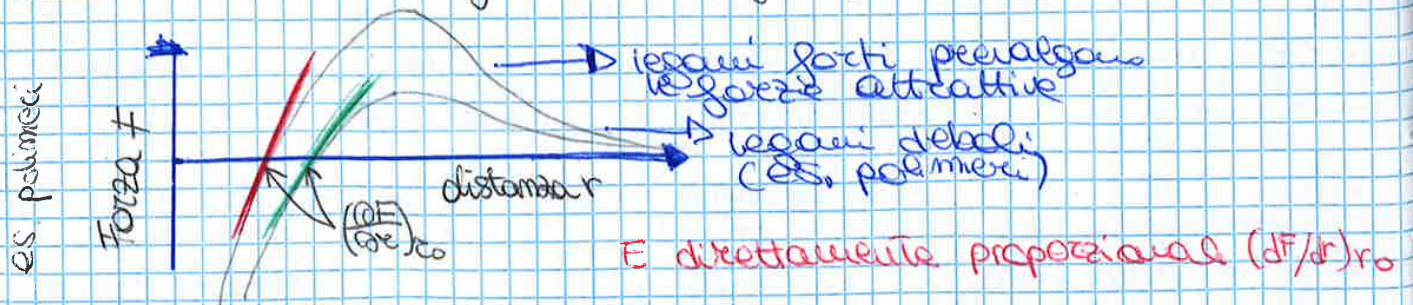 es. polimeri
Forza F
legami forti prevalgono
le forze attrattive
legami deboli
(es. polimeri)
distanza r
(dF/dr)r₀
E direttamente proporzional (dF/dr)r₀